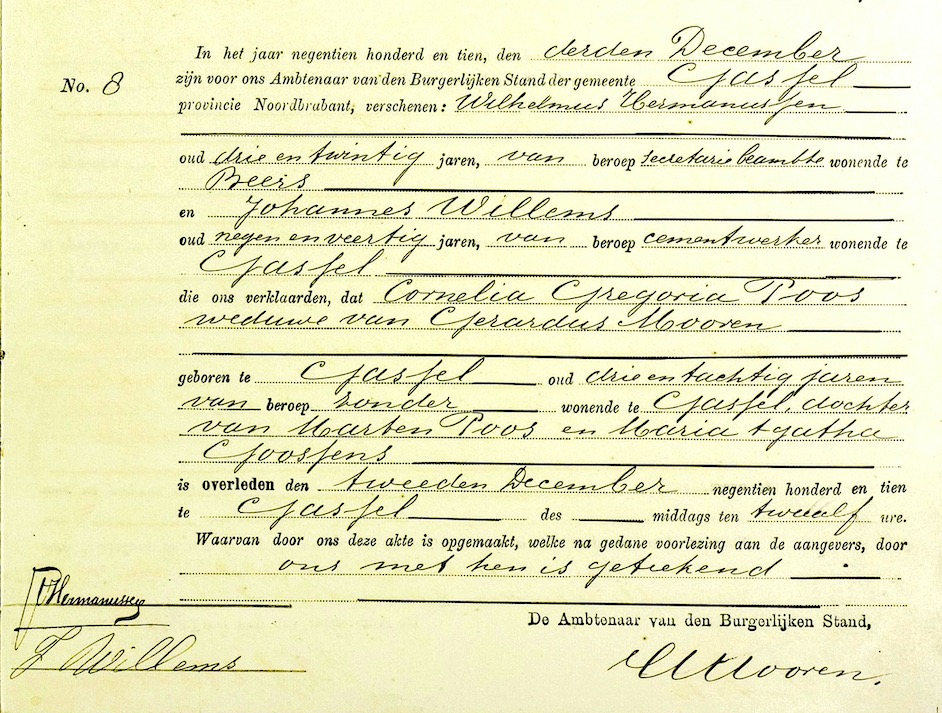 In het jaar negentien honderd en tien, den derden December
No. 8
zijn voor ons Ambtenaar van den Burgerlijken Stand der gemeente Gassel
provincie Noordbrabant, verschenen: Wilhelmus Hermanussen
oud drie en twintig jaren, van beroep secretarie beambte wonende te
Beers
en Johannes Willems
oud negen en veertig jaren, van beroep cementwerker wonende te
Gassel
die ons verklaarden, dat Cornelia Gregoria Poos
weduwe van Gerardus Mooren
geboren te Gassel oud drie en tachtig jaren
van beroep zonder wonende te Gassel, dochter
van Marten Poos en Maria Agatha
Goossens
is overleden den tweeden December negentien honderd en tien
te Gassel des middags ten twaalf ure.
Waarvan door ons deze akte is opgemaakt, welke na gedane voorlezing aan de aangevers, door
ons met hen is geteekend
Hermanussen
De Ambtenaar van den Burgerlijken Stand,
J Willems
Mooren.